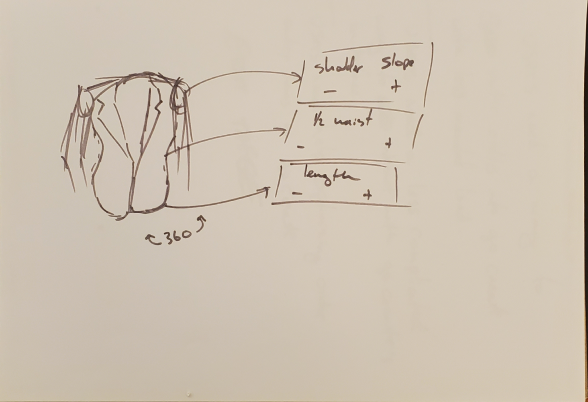 shoulder slope
- +
½ waist
- +
length
- +
360